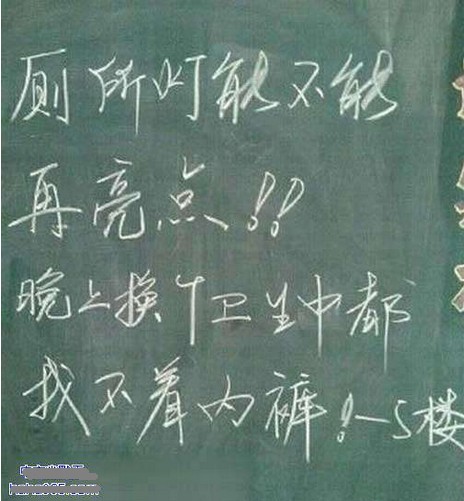 厕所灯能不能
再亮点!!
晚上换个卫生巾都
找不着内裤!—5楼